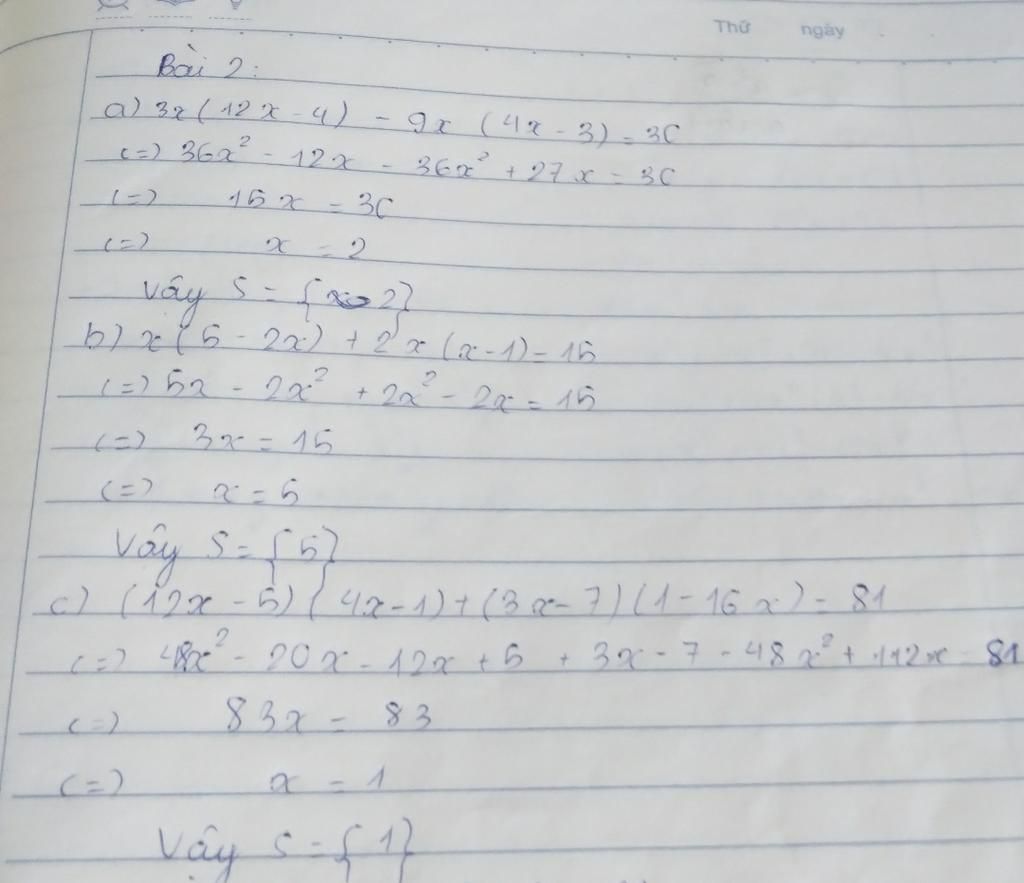 Thứ ngày
Bài 2:
a) 3x(12x - 4) - 9x (4x - 3) = 30
(=) 36x² - 12x - 36x² + 27x = 30
(=) 15x = 30
(=) x = 2
Vây S = { 2}
b) x(5 - 2x) + 2x(x-1) = 15
(=) 5x - 2x² + 2x² - 2x = 15
(=) 3x = 15
(=) x = 5
Vây S = {5}
c) (12x - 5)(4x-1) + (3x-7)(1-16x) = 81
(=) 48x² - 20x - 12x + 5 + 3x - 7 - 48x² + 112x = 81
(=) 83x = 83
(=) x = 1
Vây S = {1}